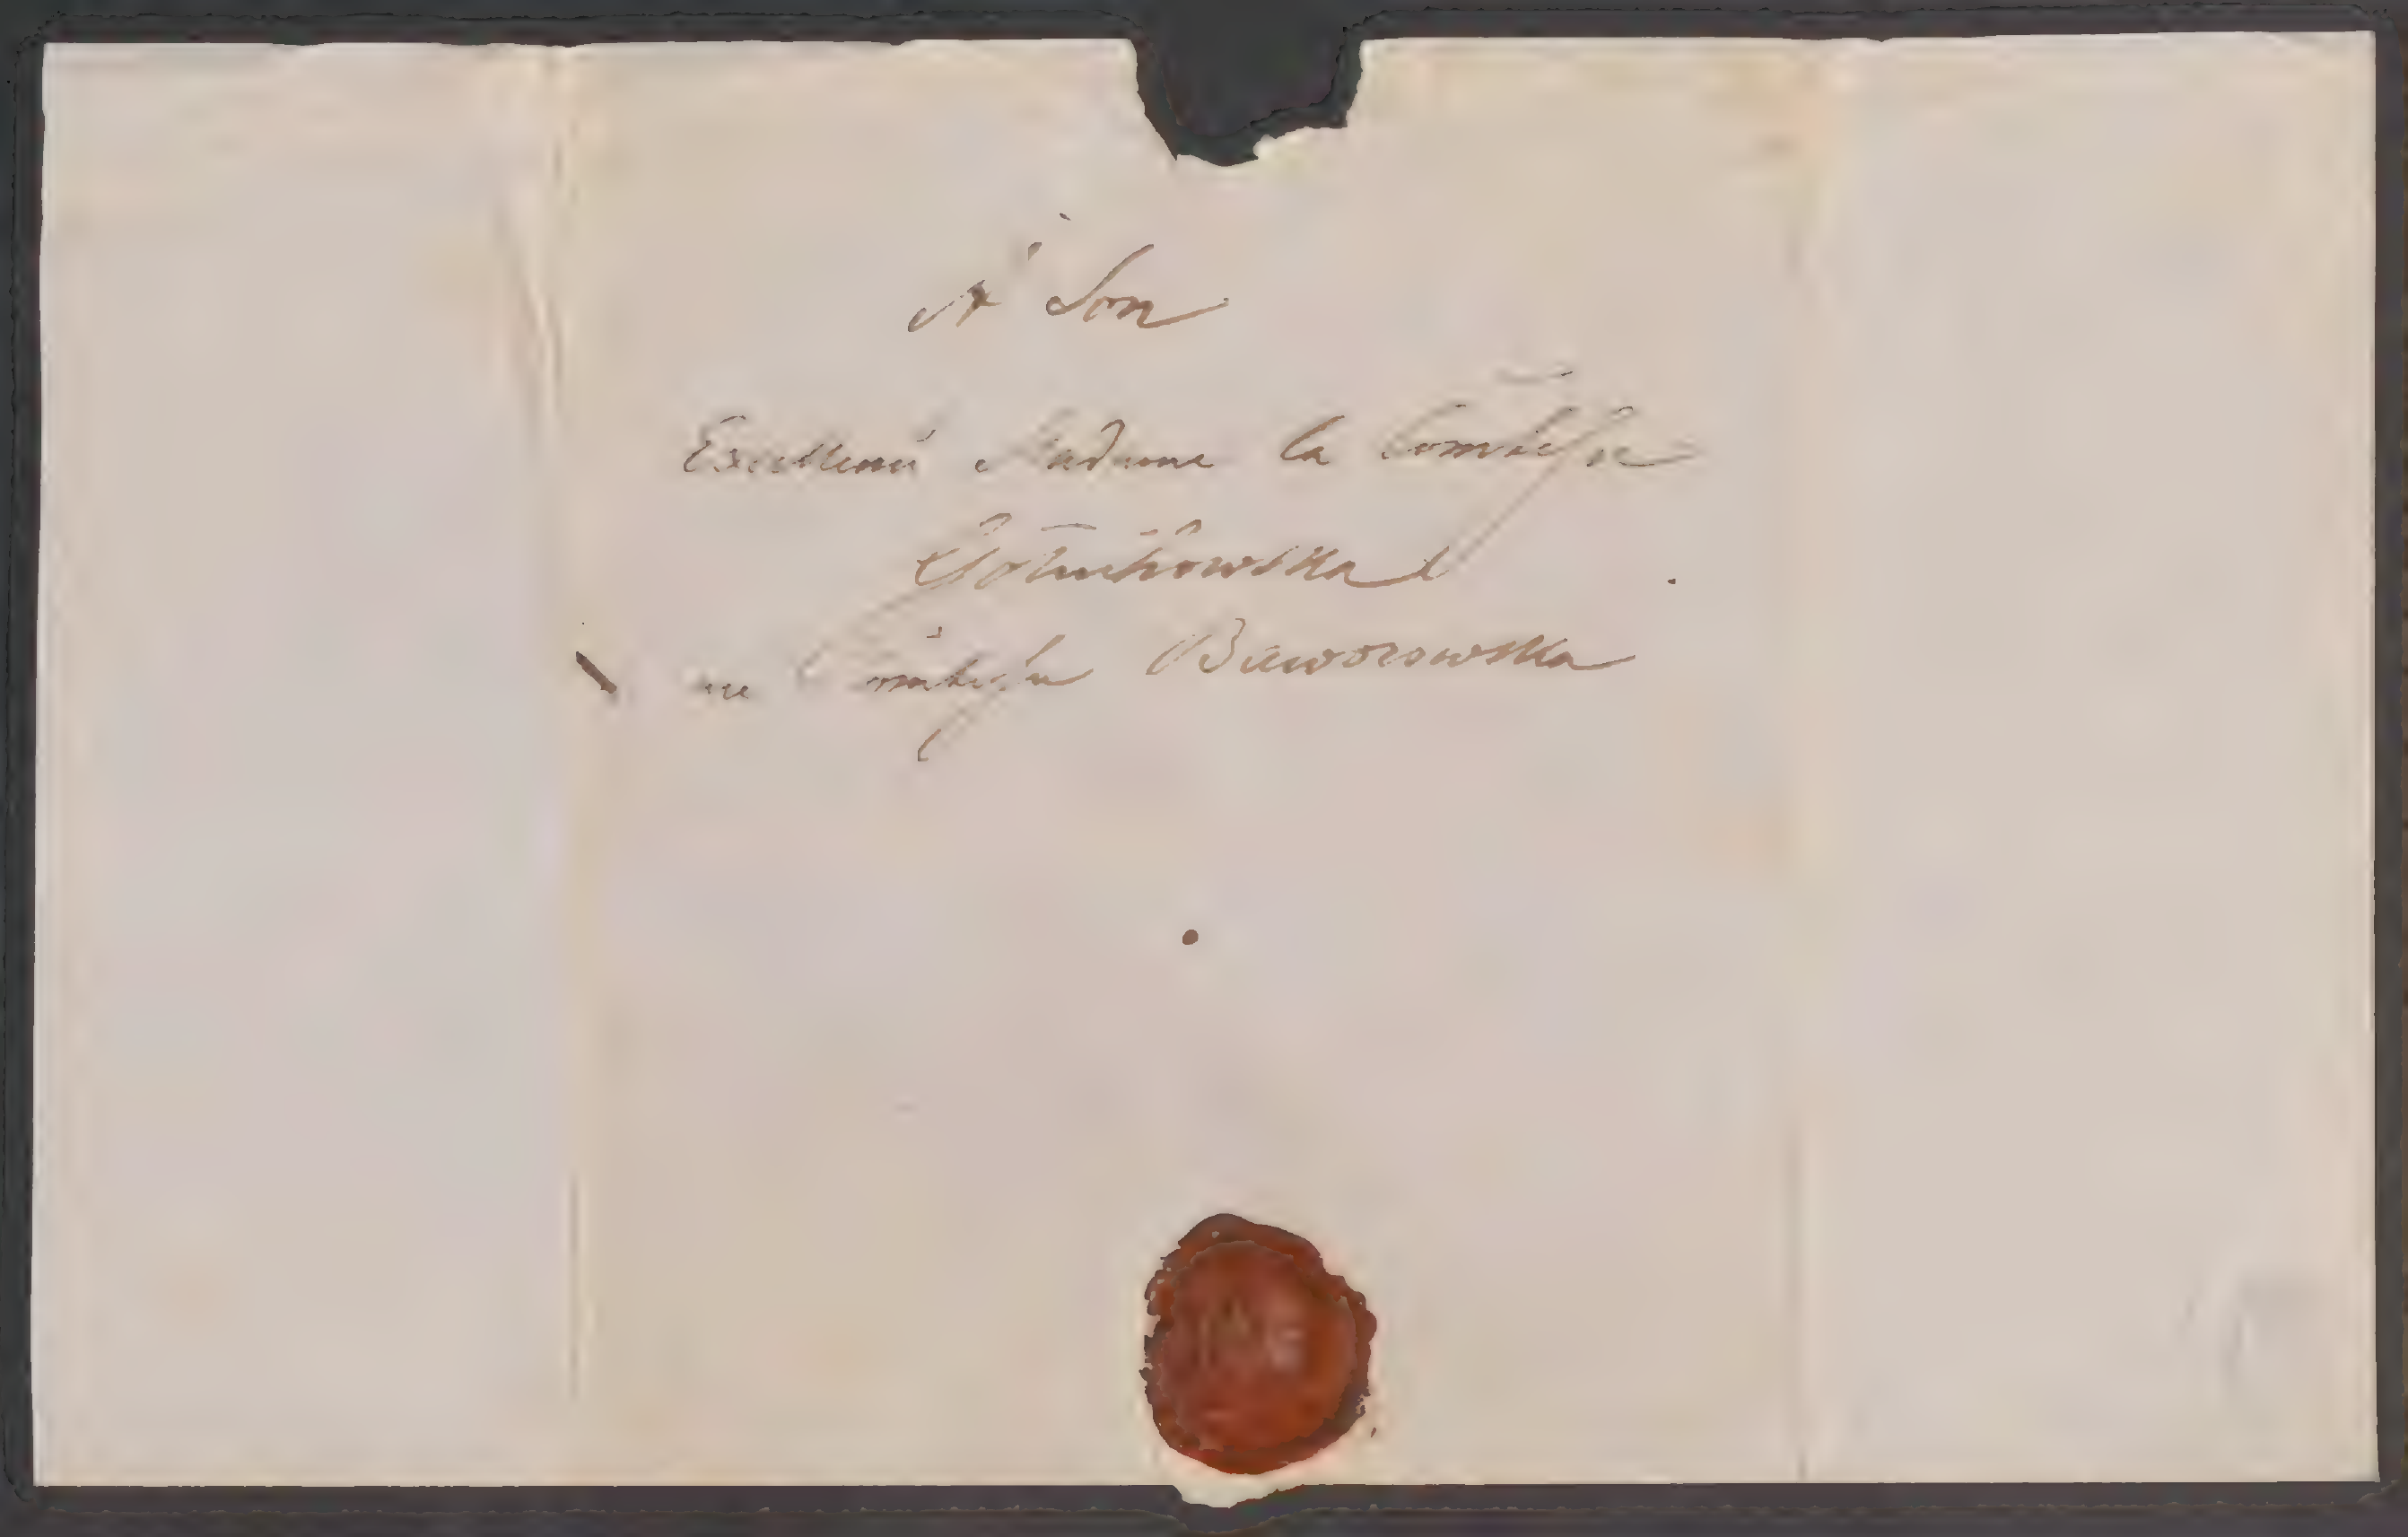 À Son
Excellence Madame la Comtesse
Gołuchowska
née Comtesse Baworowska